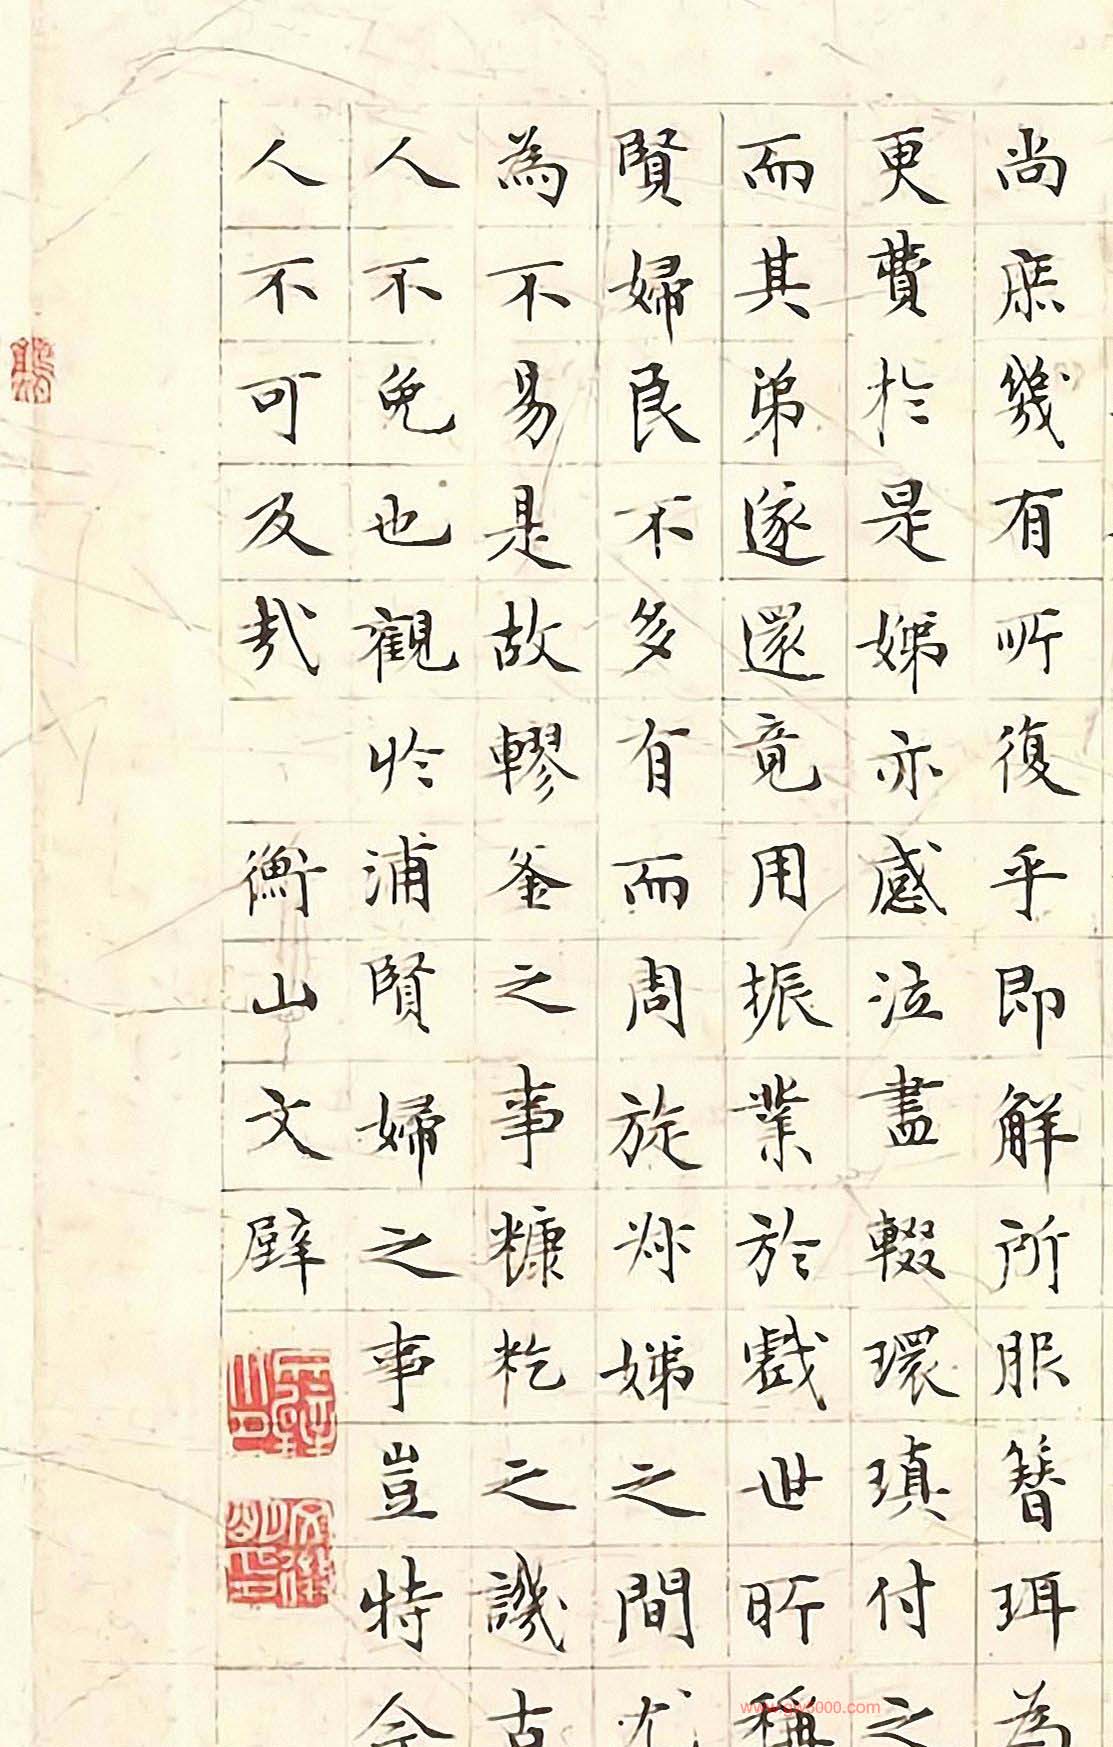 尚庶幾有所復乎即解所服簪珥為
更費於是娣亦感泣盡輟環瑱付之
而其弟遂還竟用振業於戲世所稱
賢婦良不多有而周旋姒娣之間尤
為不易是故轑釜之事糠籺之譏古
人不免也觀於浦賢婦之事豈特今
人不可及哉 衡山文璧
www.gw3000.com